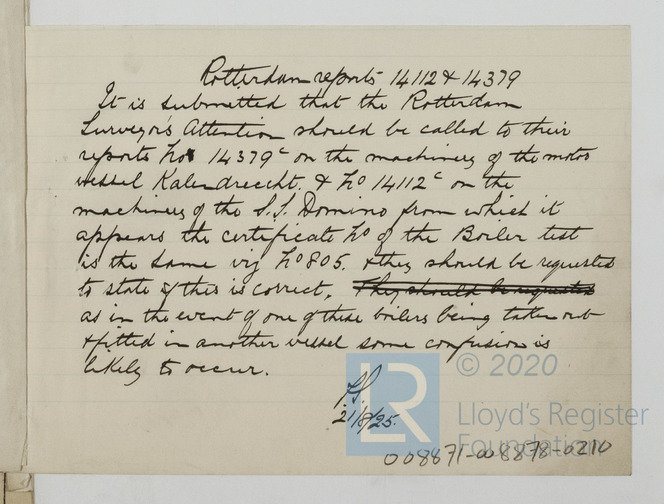 Rotterdam reports 14112 & 14379
It is submitted that the Rotterdam
Surveyor's Attention should be called to their
reports No 14379c on the machinery of the motor
vessel Kalendrecht. & No 14112c on the
machinery of the S.S. Domino from which it
appears the certificate No of the Boiler test
is the same viz No 805. & they should be requested
to state if this is correct, They should be requested
as in the event of one of these boilers being taken out
& fitted in another vessel some confusion is
likely to occur.
21/8/25.
LR
© 2020
Lloyd's Register
Foundation
008871-008878-0210